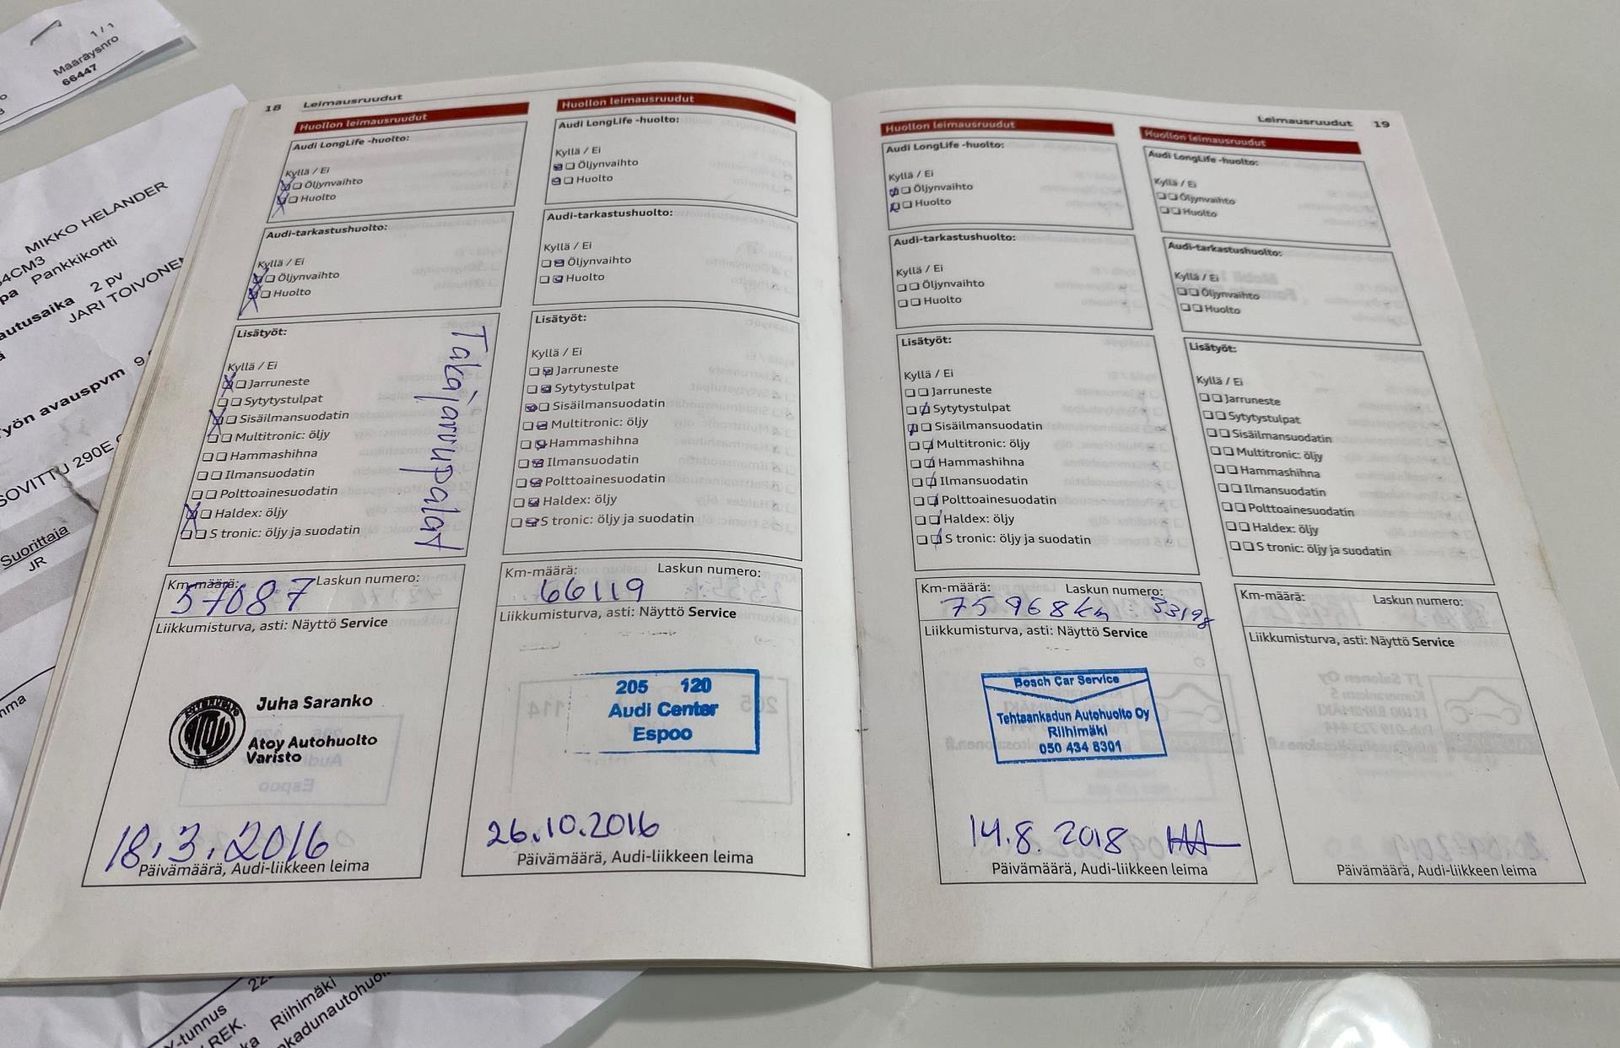 1 / 1
Määräysnro
66447
MIKKO HELANDER
34CM3
pa Pankkikortti
autusaika 2 pv
JARI TOIVONEN
Työn avauspvm 9.
SOVITTU 290E
Suorittaja
JR
18 Leimausruudut
Huollon leimausruudut
Audi LongLife -huolto:
Kyllä / Ei
Öljynvaihto
Huolto
Audi-tarkastushuolto:
Kyllä / Ei
Öljynvaihto
Huolto
Lisätyöt:
Kyllä / Ei
Jarruneste
Sytytystulpat
Sisäilmansuodatin
Multitronic: öljy
Hammashihna
Ilmansuodatin
Polttoainesuodatin
Haldex: öljy
S tronic: öljy ja suodatin
Takajarrupalat
Km-määrä: Laskun numero:
57087
Liikkumisturva, asti: Näyttö Service
Juha Saranko
Atoy Autohuolto
Varisto
18.3.2016
Päivämäärä, Audi-liikkeen leima
Huollon leimausruudut
Audi LongLife -huolto:
Kyllä / Ei
Öljynvaihto
Huolto
Audi-tarkastushuolto:
Kyllä / Ei
Öljynvaihto
Huolto
Lisätyöt:
Kyllä / Ei
Jarruneste
Sytytystulpat
Sisäilmansuodatin
Multitronic: öljy
Hammashihna
Ilmansuodatin
Polttoainesuodatin
Haldex: öljy
S tronic: öljy ja suodatin
Km-määrä: Laskun numero:
66119
Liikkumisturva, asti: Näyttö Service
205 120
Audi Center
Espoo
26.10.2016
Päivämäärä, Audi-liikkeen leima
Leimausruudut 19
Huollon leimausruudut
Audi LongLife -huolto:
Kyllä / Ei
Öljynvaihto
Huolto
Audi-tarkastushuolto:
Kyllä / Ei
Öljynvaihto
Huolto
Lisätyöt:
Kyllä / Ei
Jarruneste
Sytytystulpat
Sisäilmansuodatin
Multitronic: öljy
Hammashihna
Ilmansuodatin
Polttoainesuodatin
Haldex: öljy
S tronic: öljy ja suodatin
Km-määrä: Laskun numero:
75 968 km 33198
Liikkumisturva, asti: Näyttö Service
Bosch Car Service
Tehtaankadun Autohuolto Oy
Riihimäki
050 434 8301
14.8. 2018
Päivämäärä, Audi-liikkeen leima
Huollon leimausruudut
Audi LongLife -huolto:
Kyllä / Ei
Öljynvaihto
Huolto
Audi-tarkastushuolto:
Kyllä / Ei
Öljynvaihto
Huolto
Lisätyöt:
Kyllä / Ei
Jarruneste
Sytytystulpat
Sisäilmansuodatin
Multitronic: öljy
Hammashihna
Ilmansuodatin
Polttoainesuodatin
Haldex: öljy
S tronic: öljy ja suodatin
Km-määrä: Laskun numero:
Liikkumisturva, asti: Näyttö Service
Päivämäärä, Audi-liikkeen leima
Y-tunnus
REK.
Riihimäki
nkadunautohuol